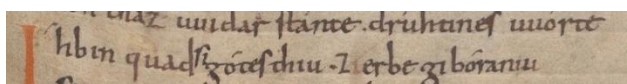 thaz uuidar stante · druhtines uuorte
Ih bin quad si gótes thiu · zi erbe gibóraniu